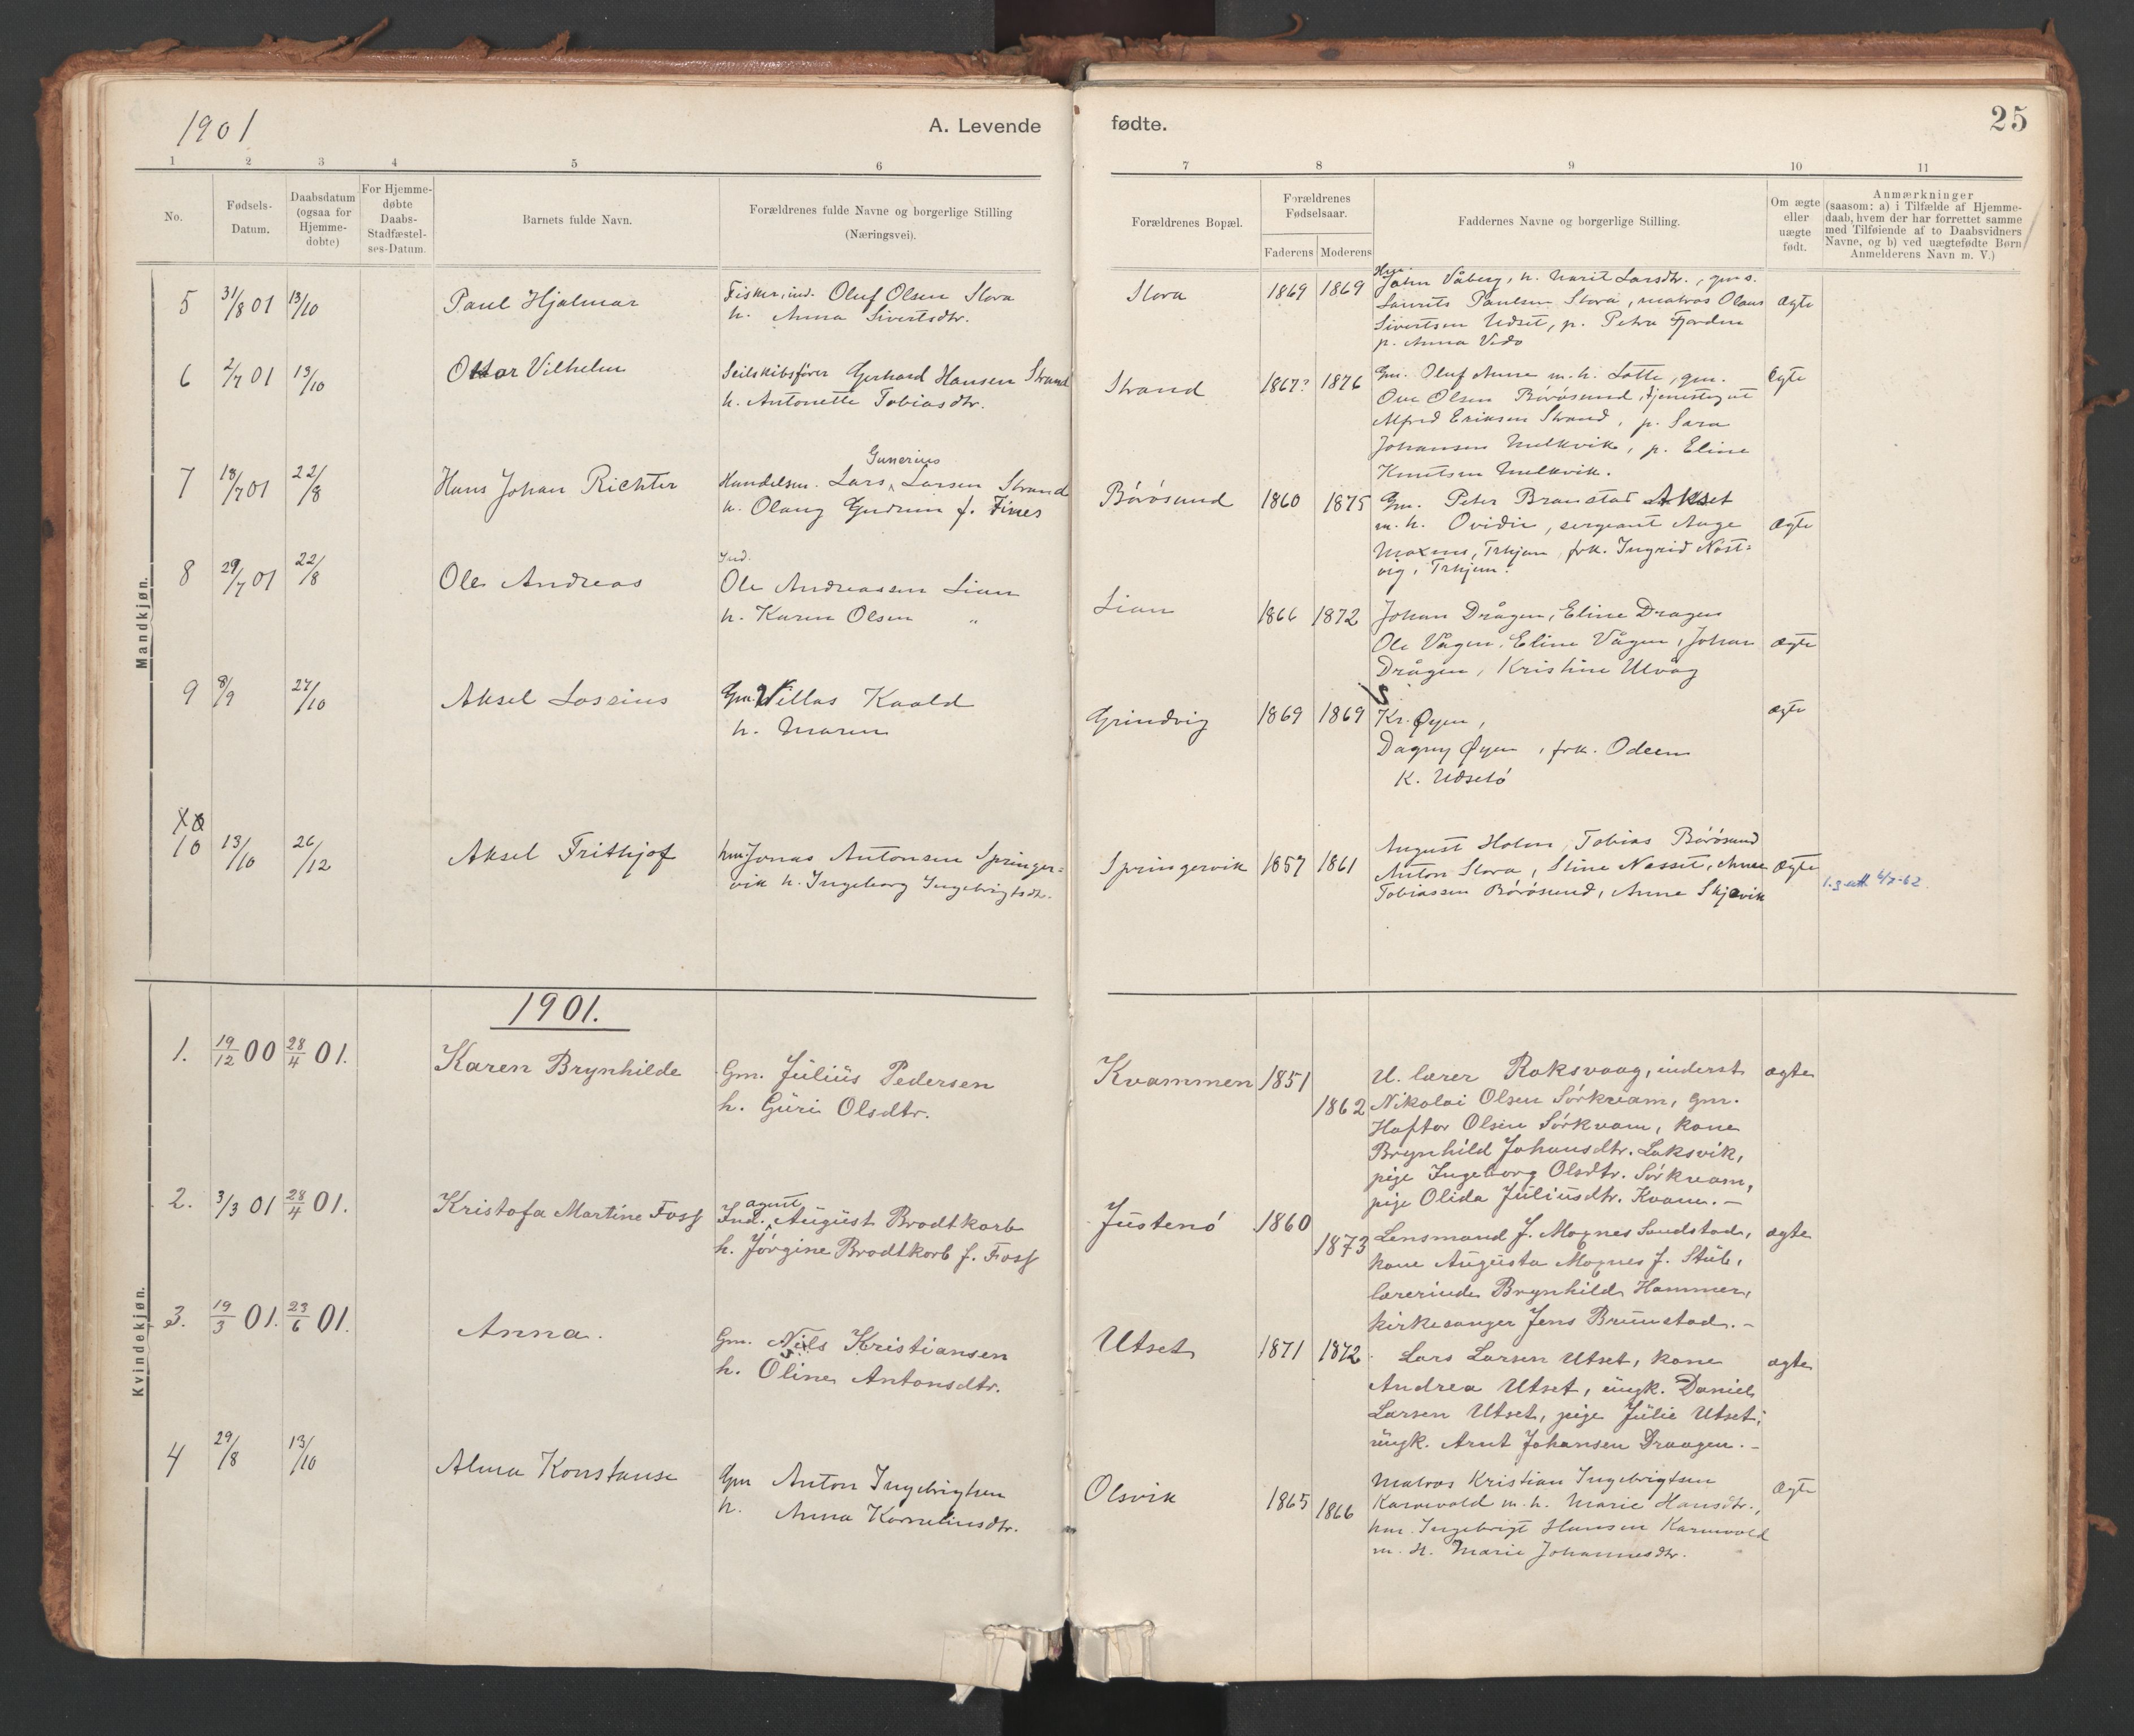 1901
A. Levende
fødte.
25
1 2 3 4 5 6 7 8 9 10 11
No.
Fødsels-
Datum.
Daabsdatum
(ogsaa for
Hjemme-
døbte)
For Hjemme-
døbte
Daabs-
Stadfæstel-
ses-Datum.
Barnets fulde Navn.
Forældrenes fulde Navne og borgerlige Stilling
(Næringsvei).
Forældrenes Bopæl.
Forældrenes
Fødselsaar.
Faderens Moderens
Faddernes Navne og borgerlige Stilling.
Om ægte
eller
uægte
født.
Anmærkninger
(saasom: a) i Tilfælde af Hjemme-
daab, hvem der har forrettet samme
med Tilføiende af to Daabsvidners
Navne, og b) ved uægtefødte Børn
Anmelderens Navn m. V.)
Mandkjøn.
5 31/8 01 13/10 Paul Hjalmar
Fisker, ind. Oluf Olsen Stora
h. Anna Sivertsdtr.
Stora 1869 1869
John Våberg, h. Marit Larsdtr., gm. s.
Laurits Paulsen Stora, matros Olaus
Sivertsen Udset, p. Petra Fjorden
p. Anna Vedø
ægte
6 2/7 01 13/10 Ottar Vilhelm
Seilskibsfører Gerhard Hansen Strand
h. Antonette Tobiasdtr.
Strand 1867? 1876
Gm. Oluf Aune m. h. Lotte, gm.
Ove Olsen Börösund, tjenestegut
Alfred Eriksen Strand, p. Sara
Johansen Melkvik, p. Eline
Knutsen Melkvik.
Egte
7 18/7 01 22/8 Hans Johan Richter
Gunerius
Handelsm. Lars Larsen Strand
h. Olaug Gudrun f. Fines
Börösund 1860 1875
Gm. Peter Branstad Akset
m. h. Ovidie, sergeant Aage
Moxnes, Trhjem, frk. Ingrid Næst=
vig, Trhjem.
ægte
8 29/7 01 22/8 Ole Andreas
Ind.
Ole Andreassen Lian
h. Karen Olsen "
Lian 1866 1872
Johan Drågen, Eline Dragen
Ole Vågen, Eline Vågen, Johan
Drågen, Kristine Ulvåg
ægte
9 8/9 27/10 Aksel Lossius
Gm. Villas Kaald
h. Maren
Grindvig 1869 1869
Kr. Øyen,
Dagny Øyen, frk. Odeen
K. Udsetö
ægte
10 13/10 26/12 Aksel Frithjof
hm. Jonas Antonsen Springer=
vik h. Ingeborg Ingebrigtsdtr.
Springervik 1857 1861
August Holm, Tobias Börösund
Anton Stora, Stine Nesset, Anne
Tobiassen Börösund, Anne Skjævik
Ægte
1.g att 6/7-62.
1901.
Kvindekjøn.
1. 19/12 00 28/4 01. Karen Brynhilde
Gm. Julius Pedersen
h. Guri Olsdtr.
Kvammen 1851 1862
U. lærer Raksvaag, inderst
Nikolai Olsen Sörkvam, gm.
Haftor Olsen Sörkvam, kone
Brynhild Johansdtr. Laksvik,
pige Ingeborg Olsdtr. Sörkvam,
pige Olida Juliusdtr. Kvam.-
ægte
2. 3/3 01 28/4 01. Kristofa Martine Foss
agent
Ind. August Brodtkorb
h. Jörgine Brodtkorb f. Foss
Justenö 1860 1873
Lensmand J. Moxnes Sandstad,
kone Augusta Moxnes f. Stub,
lærerinde Brynhild Hammer,
kirkesanger Jens Brunstad.-
ægte
3. 19/3 01. 23/6 01. Anna.
Gm. Nils Kristiansen
h. Oline Antonsdtr.
Utset 1871 1872.
Lars Larsen Utset, kone
Andrea Utset, ungk. Daniel
Larsen Utset, pige Julie Utset;
ungk. Arnt Johansen Draagen.-
ægte
4 29/8 13/10 Alma Konstanse
Gm Anton Ingebrigtsen
h. Anna Korneliusdtr.
Olsvik 1865 1866
Matros Kristian Ingebrigtsen
Karnvold m. h. Marie Hansdtr.,
hm. Ingebrigt Hansen Karnvold
m. h. Marie Johannesdtr.
Ægte